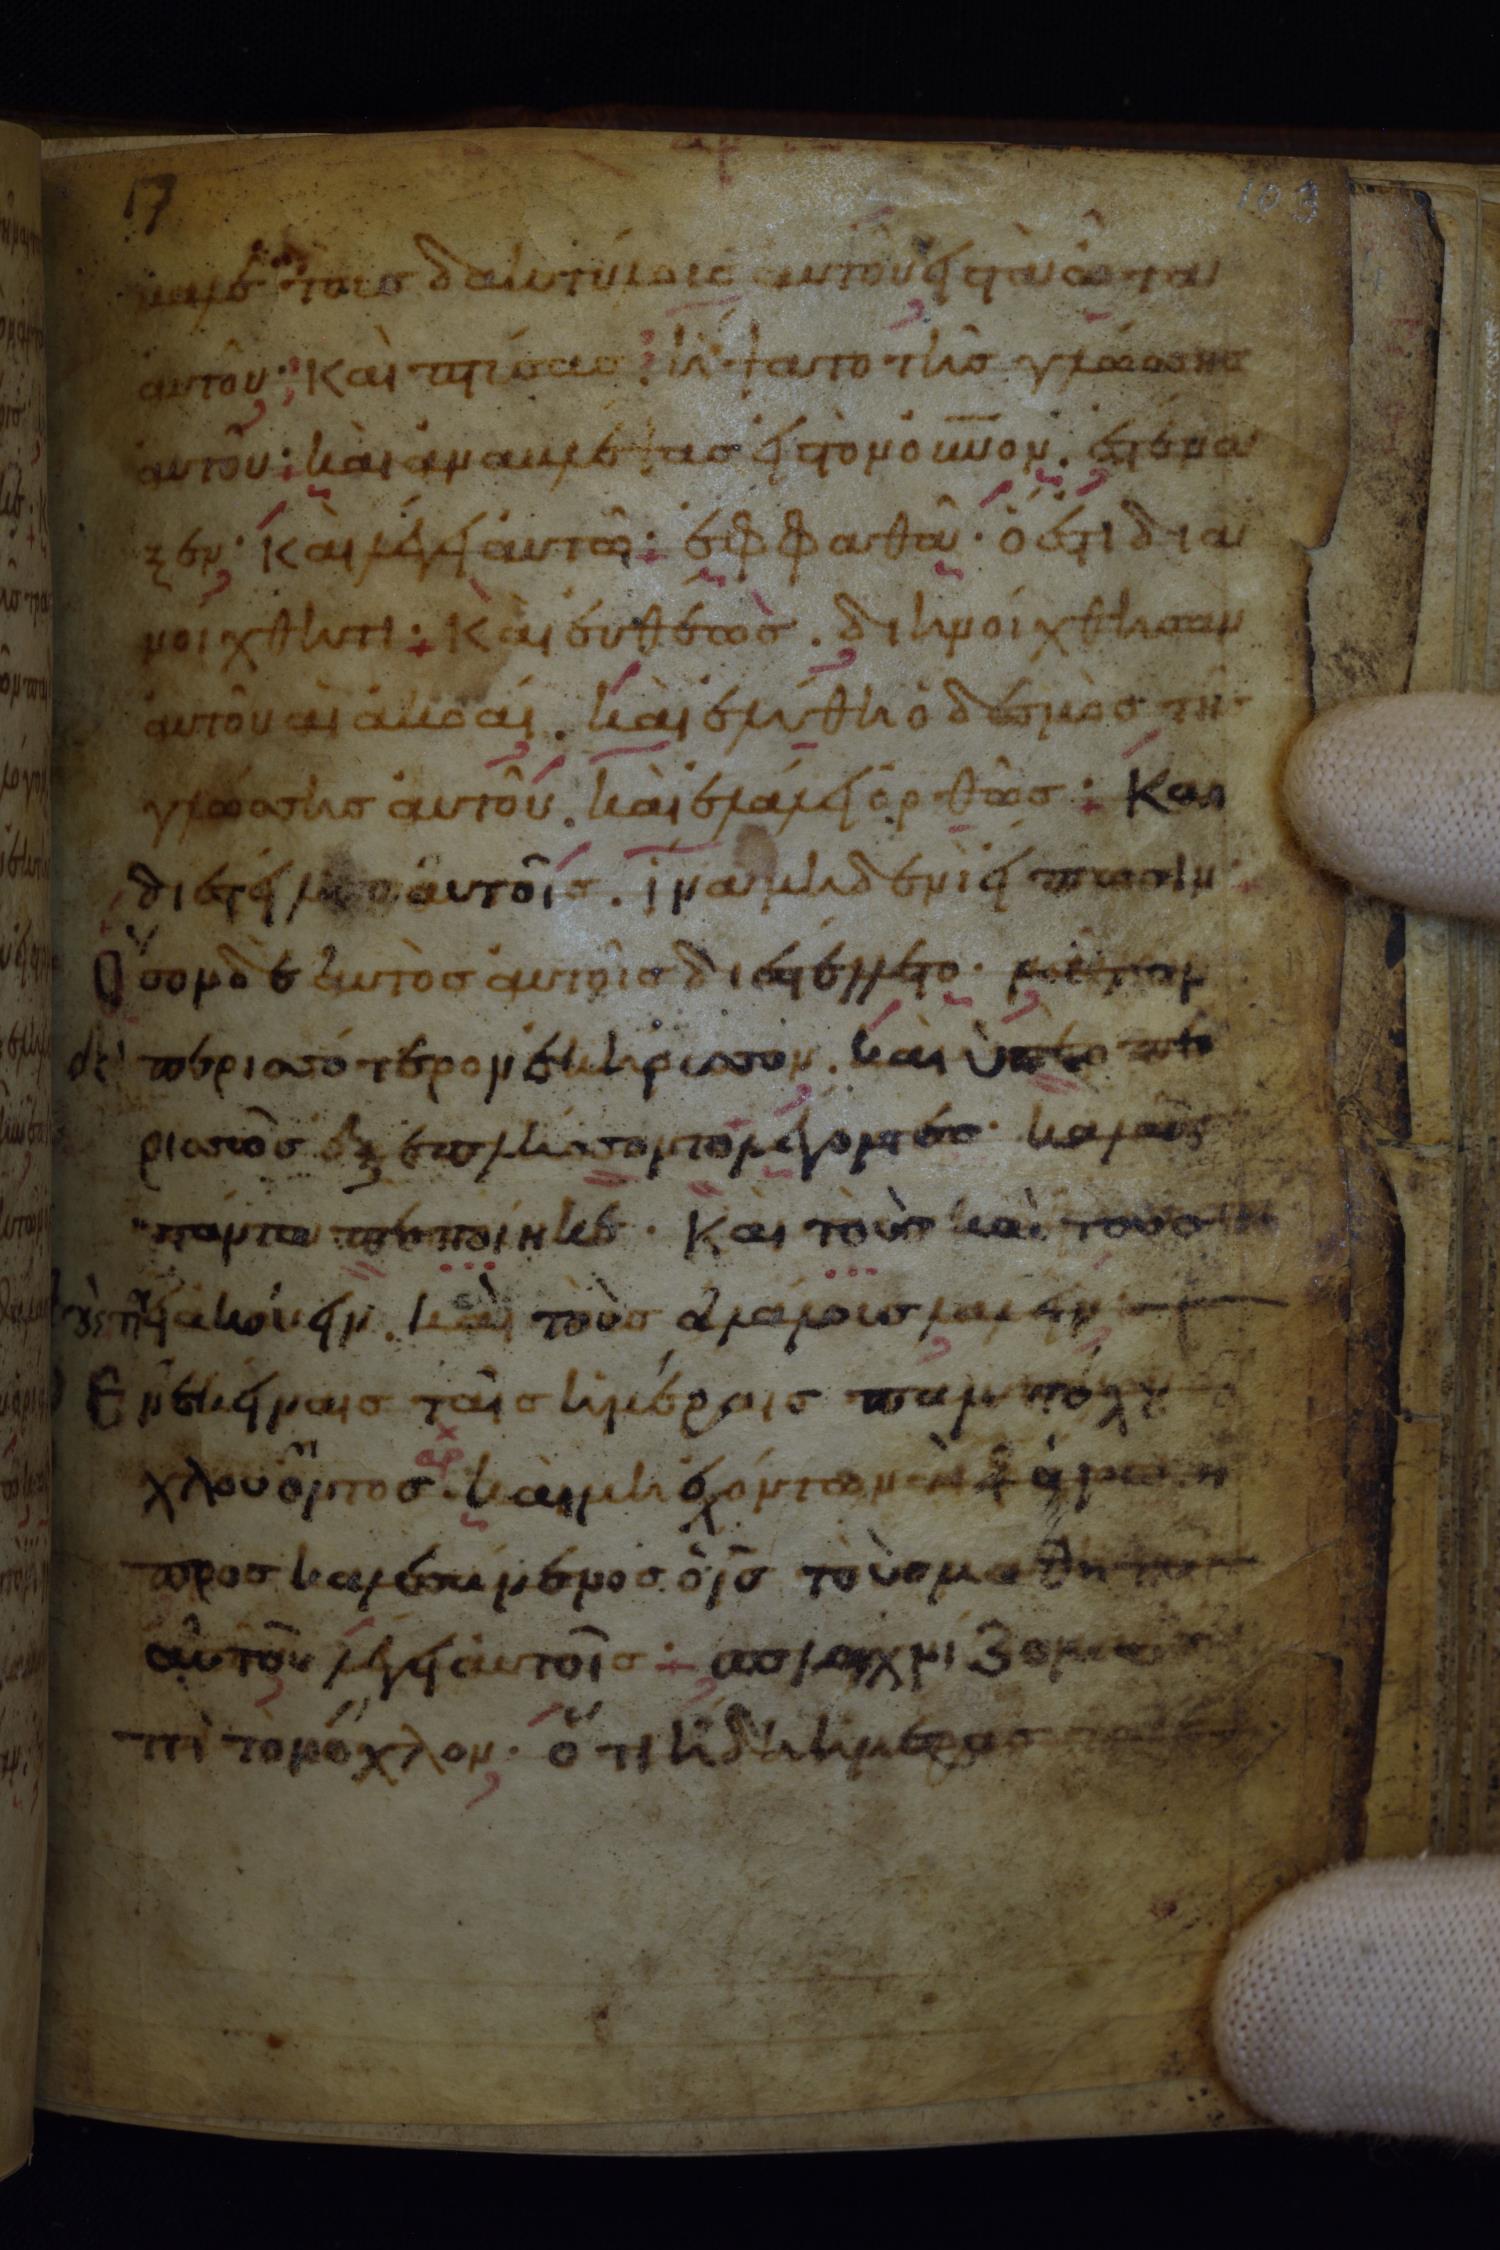 17
103
βαλε τοὺς δακτύλους αὐτοῦ εἰς τὰ ὦτα
αὐτοῦ· καὶ πτύσας ἥψατο τῆς γλώσσης
αὐτοῦ· καὶ ἀναβλέψας εἰς τὸν οὐνον. ἐστένα
ξεν· καὶ λέγει αὐτῶ· ἐφφαθᾶ· ὅ ἐστι δια
νοίχθητι· καὶ εὐθέως. διηνοίχθησαν
αὐτοῦ αἱ ἀκοαί. καὶ ἐλύθη ὁ δεσμὸς τῆς
γλώσσης αὐτοῦ. καὶ ἐλάλει ὀρθῶς· Και
διεστείλατο αὐτοῖς. ἵνα μηδενὶ εἴπωσιν
Ὅσον δὲ αὐτὸς αὐτοῖς διεστέλλετο· μᾶλλον
περισσότερον ἐκήρυσσον. καὶ ὑπερπε
ρισσῶς ἐξεπλήσσοντο λέγοντες· καλῶς
πάντα πεποίηκε· Καὶ τοὺς
ἀκούειν. καὶ τοὺς ἀλάλους λαλεῖν
Ἐν ἐκείναις ταῖς ἡμέραις παμπόλλου
χλου ὄντος. καὶ μὴ ἐχόντων
προσκαλεσάμενος ὁ ις τοὺς μαθητὰς
αὐτοῦ λέγει αὐτοῖς· σπλαχνίζομαι
πὶ τὸν ὄχλον· ὅτι ἤδη ἡμέρας